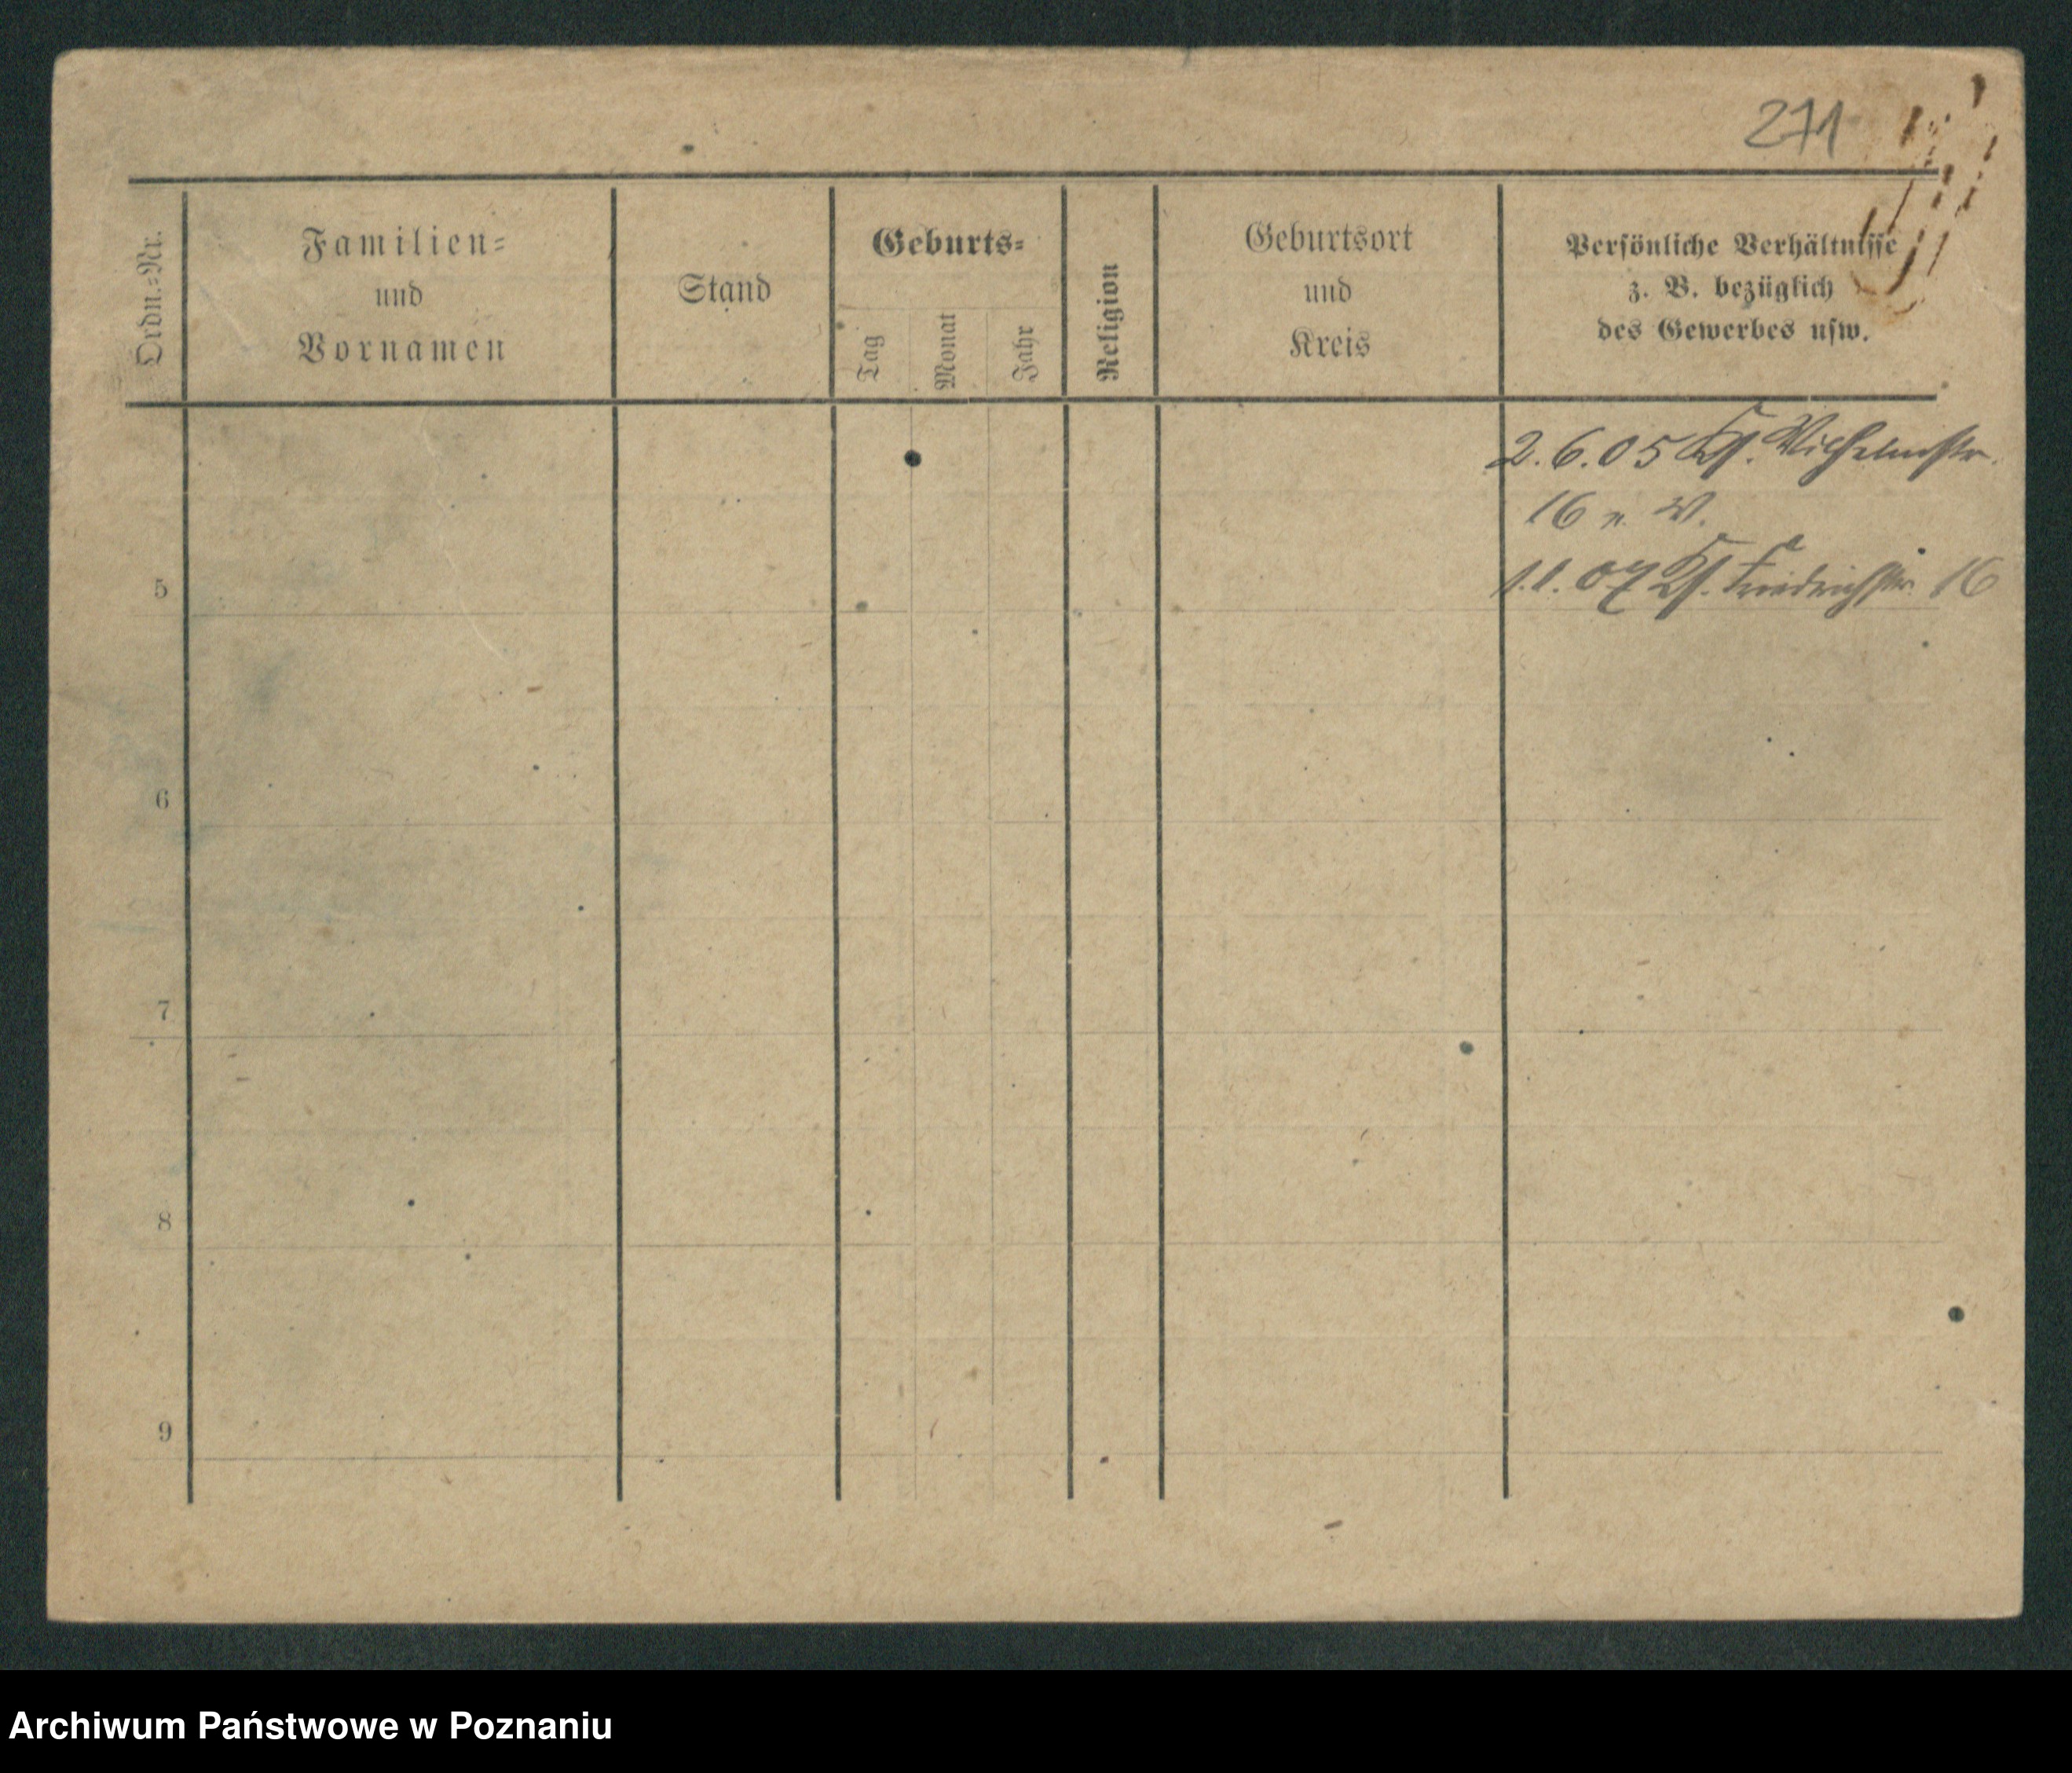 271
Ordn.=Nr.
Familien=
und
Vornamen
Stand
Geburts=
Tag
Monat
Jahr
Religion
Geburtsort
und
Kreis
Persönliche Verhältnisse
z. B. bezüglich
des Gewerbes usw.
2.6.05 Wilhelmstr.
16 n. W.
1.1.07 Friedrichstr. 16
5
6
7
8
9
Archiwum Państwowe w Poznaniu